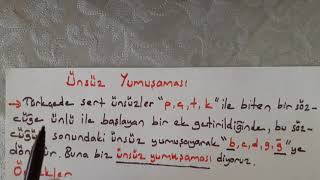 Ünsüz Yumuşaması
→ Türkçede sert ünsüzler "p, ç, t, k" ile biten bir söz-
cüğe ünlü ile başlayan bir ek getirildiğinde, bu söz-
cüğün sonundaki ünsüz yumuşayarak "b, c, d, g, ğ" ye
dönüşür. Buna biz ünsüz yumuşaması diyoruz.
Örnekler